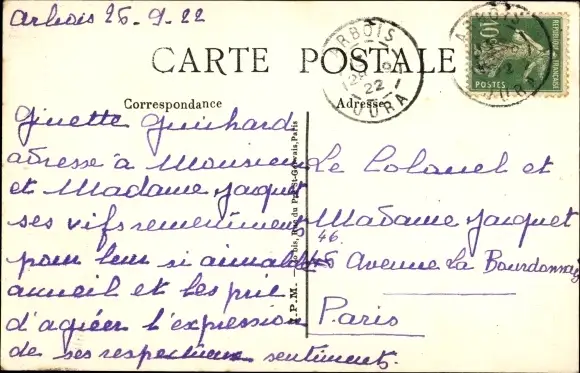 Arbois 25-9-22
CARTE POSTALE
ARBOIS
22
JURA
ARBOIS
JURA
REPUBLIQUE FRANÇAISE
10
POSTES
Correspondance
Adresse
Ginette Guichard
adresse à Monsieur
et Madame Jacquet
ses vifs remerciments
pour leur si aimable
accueil et les prie
d'agréer l'expression
de ses respectueux sentiments.
Le Colonel et
Madame Jacquet
46
45 Avenue La Bourdonnais
Paris
I.P.M. Rue du Pré-St-Gervais, Paris